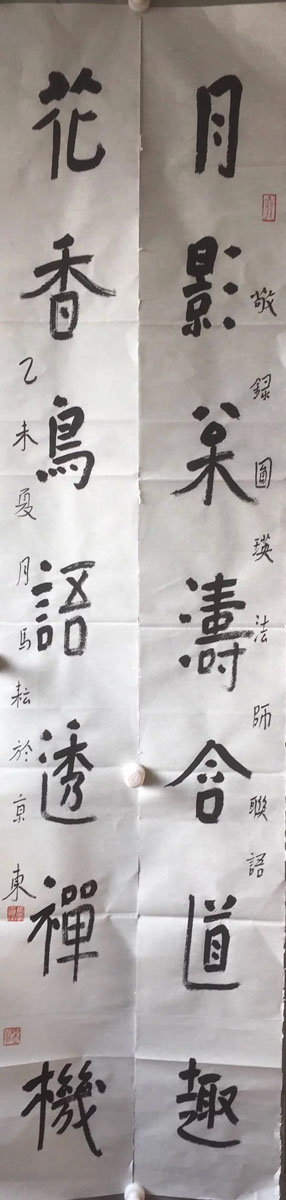 月影枀濤含道趣
敬録圓瑛法師聯語
花香鳥語透禪機
乙未夏月馬耘於京東